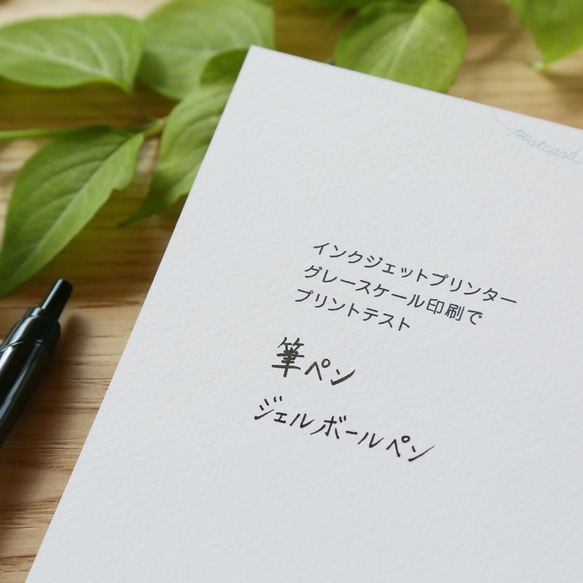 postcard
インクジェットプリンター
グレースケール印刷で
プリントテスト
筆ペン
ジェルボールペン